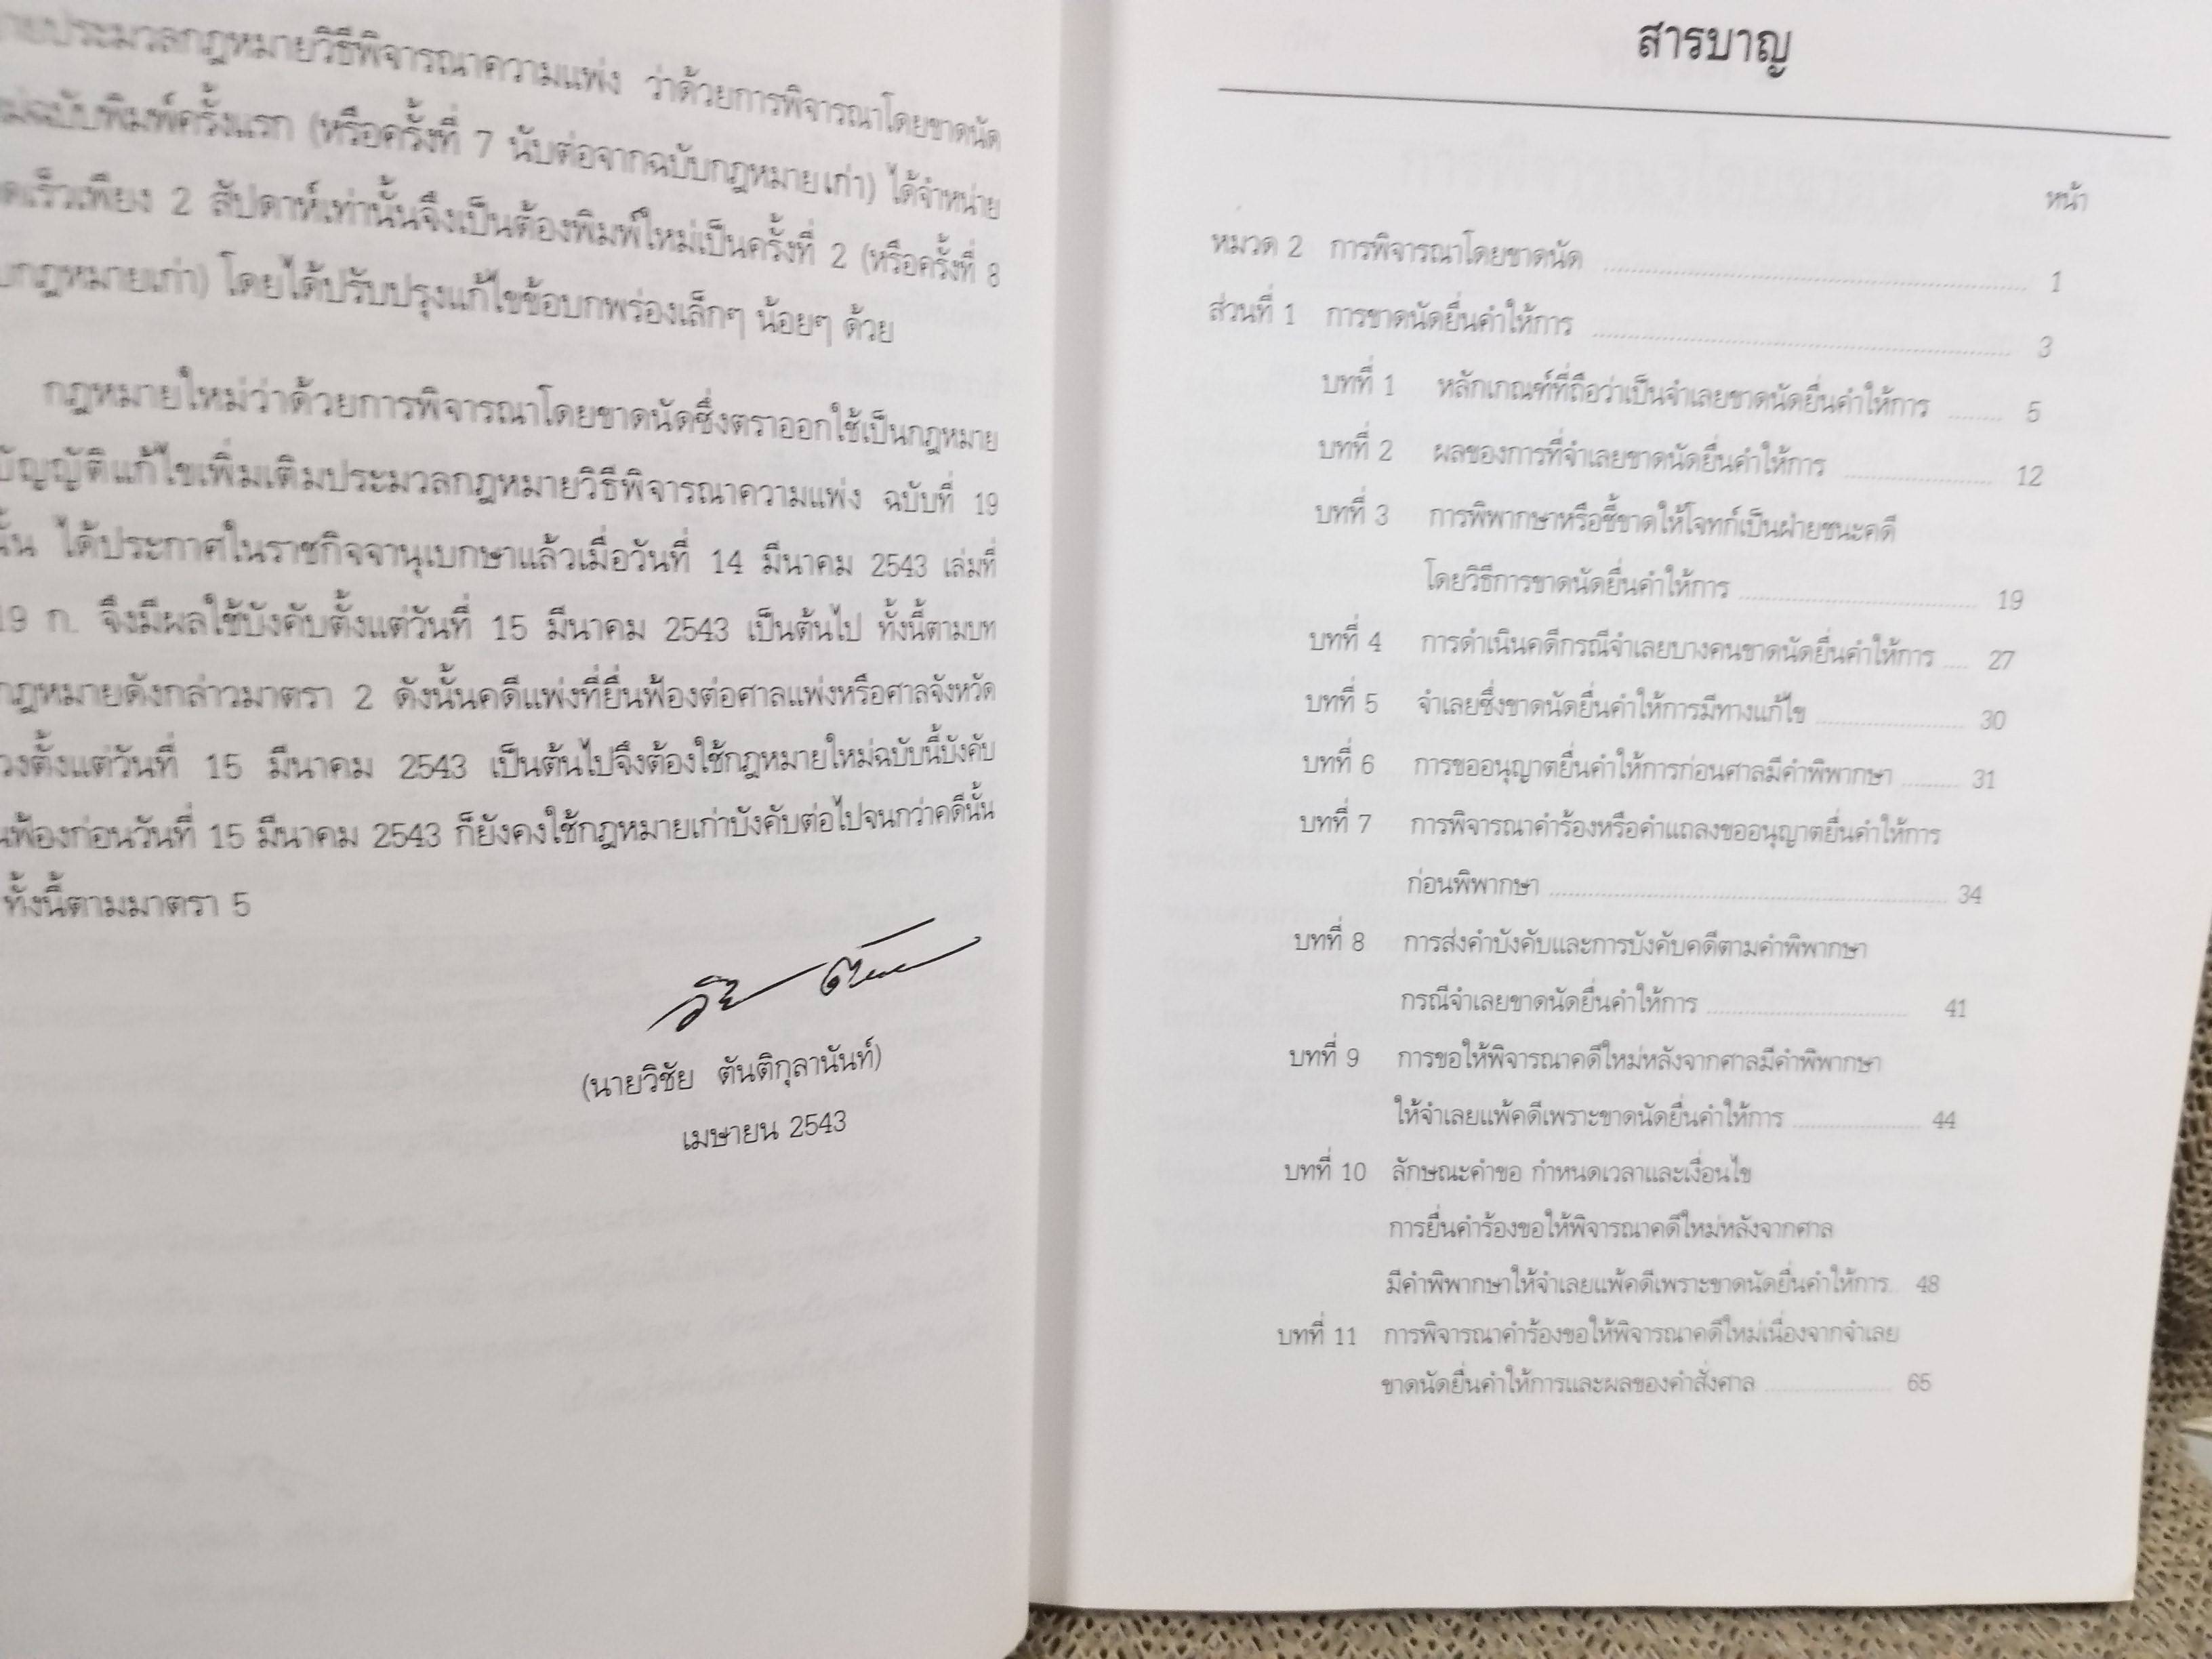 ประมวลกฎหมายวิธีพิจารณาความแพ่ง ว่าด้วยการพิจารณาโดยขาดนัด
ฉบับพิมพ์ครั้งแรก (หรือครั้งที่ 7 นับต่อจากฉบับกฎหมายเก่า) ได้จำหน่าย
เร็วเพียง 2 สัปดาห์เท่านั้นจึงเป็นต้องพิมพ์ใหม่เป็นครั้งที่ 2 (หรือครั้งที่ 8
กฎหมายเก่า) โดยได้ปรับปรุงแก้ไขข้อบกพร่องเล็กๆ น้อยๆ ด้วย
กฎหมายใหม่ว่าด้วยการพิจารณาโดยขาดนัดซึ่งตราออกใช้เป็นกฎหมาย
บัญญัติแก้ไขเพิ่มเติมประมวลกฎหมายวิธีพิจารณาความแพ่ง ฉบับที่ 19
นั้น ได้ประกาศในราชกิจจานุเบกษาแล้วเมื่อวันที่ 14 มีนาคม 2543 เล่มที่
19 ก. จึงมีผลใช้บังคับตั้งแต่วันที่ 15 มีนาคม 2543 เป็นต้นไป ทั้งนี้ตามบท
กฎหมายดังกล่าวมาตรา 2 ดังนั้นคดีแพ่งที่ยื่นฟ้องต่อศาลแพ่งหรือศาลจังหวัด
ตั้งแต่วันที่ 15 มีนาคม 2543 เป็นต้นไปจึงต้องใช้กฎหมายใหม่ฉบับนี้บังคับ
ฟ้องก่อนวันที่ 15 มีนาคม 2543 ก็ยังคงใช้กฎหมายเก่าบังคับต่อไปจนกว่าคดีนั้น
ทั้งนี้ตามมาตรา 5
(นายวิชัย ตันติกุลานันท์)
เมษายน 2543
สารบาญ
หน้า
หมวด 2 การพิจารณาโดยขาดนัด ........ 1
ส่วนที่ 1 การขาดนัดยื่นคำให้การ ........ 3
บทที่ 1 หลักเกณฑ์ที่ถือว่าเป็นจำเลยขาดนัดยื่นคำให้การ ........ 5
บทที่ 2 ผลของการที่จำเลยขาดนัดยื่นคำให้การ ........ 12
บทที่ 3 การพิพากษาหรือชี้ขาดให้โจทก์เป็นฝ่ายชนะคดี
โดยวิธีการขาดนัดยื่นคำให้การ ........ 19
บทที่ 4 การดำเนินคดีกรณีจำเลยบางคนขาดนัดยื่นคำให้การ .... 27
บทที่ 5 จำเลยซึ่งขาดนัดยื่นคำให้การมีทางแก้ไข ........ 30
บทที่ 6 การขออนุญาตยื่นคำให้การก่อนศาลมีคำพิพากษา ........ 31
บทที่ 7 การพิจารณาคำร้องหรือคำแถลงขออนุญาตยื่นคำให้การ
ก่อนพิพากษา ........ 34
บทที่ 8 การส่งคำบังคับและการบังคับคดีตามคำพิพากษา
กรณีจำเลยขาดนัดยื่นคำให้การ ........ 41
บทที่ 9 การขอให้พิจารณาคดีใหม่หลังจากศาลมีคำพิพากษา
ให้จำเลยแพ้คดีเพราะขาดนัดยื่นคำให้การ ........ 44
บทที่ 10 ลักษณะคำขอ กำหนดเวลาและเงื่อนไข
การยื่นคำร้องขอให้พิจารณาคดีใหม่หลังจากศาล
มีคำพิพากษาให้จำเลยแพ้คดีเพราะขาดนัดยื่นคำให้การ.. 48
บทที่ 11 การพิจารณาคำร้องขอให้พิจารณาคดีใหม่เนื่องจากจำเลย
ขาดนัดยื่นคำให้การและผลของคำสั่งศาล ........ 65